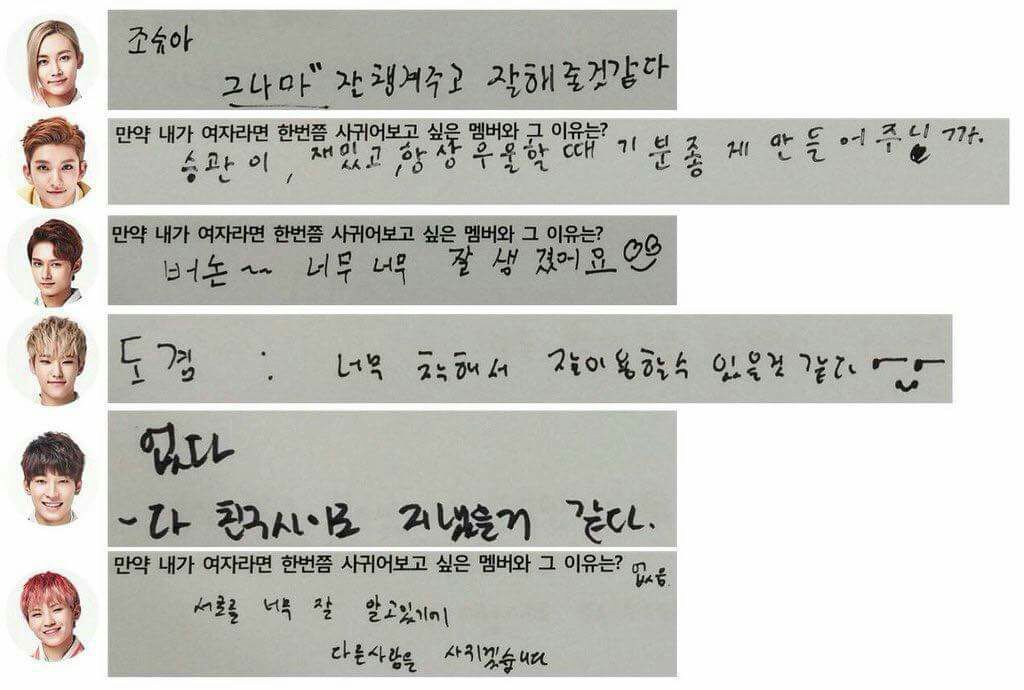 조슈아
그나마" 잘챙겨주고 잘해줄것같다
만약 내가 여자라면 한번쯤 사귀어보고 싶은 멤버와 그 이유는?
승관이, 재밌고, 항상 우울할 때 기분좋게 만들어주닊까.
만약 내가 여자라면 한번쯤 사귀어보고 싶은 멤버와 그 이유는?
버논~ 너무 너무 잘 생겼어요
도겸 : 너무 착해서 잘이용할수 있을것 같다
없다
- 다 친구사이로 지냈을거 같다.
만약 내가 여자라면 한번쯤 사귀어보고 싶은 멤버와 그 이유는? 없음
서로를 너무 잘 알고있기에
다른사람을 사귀겠습니다